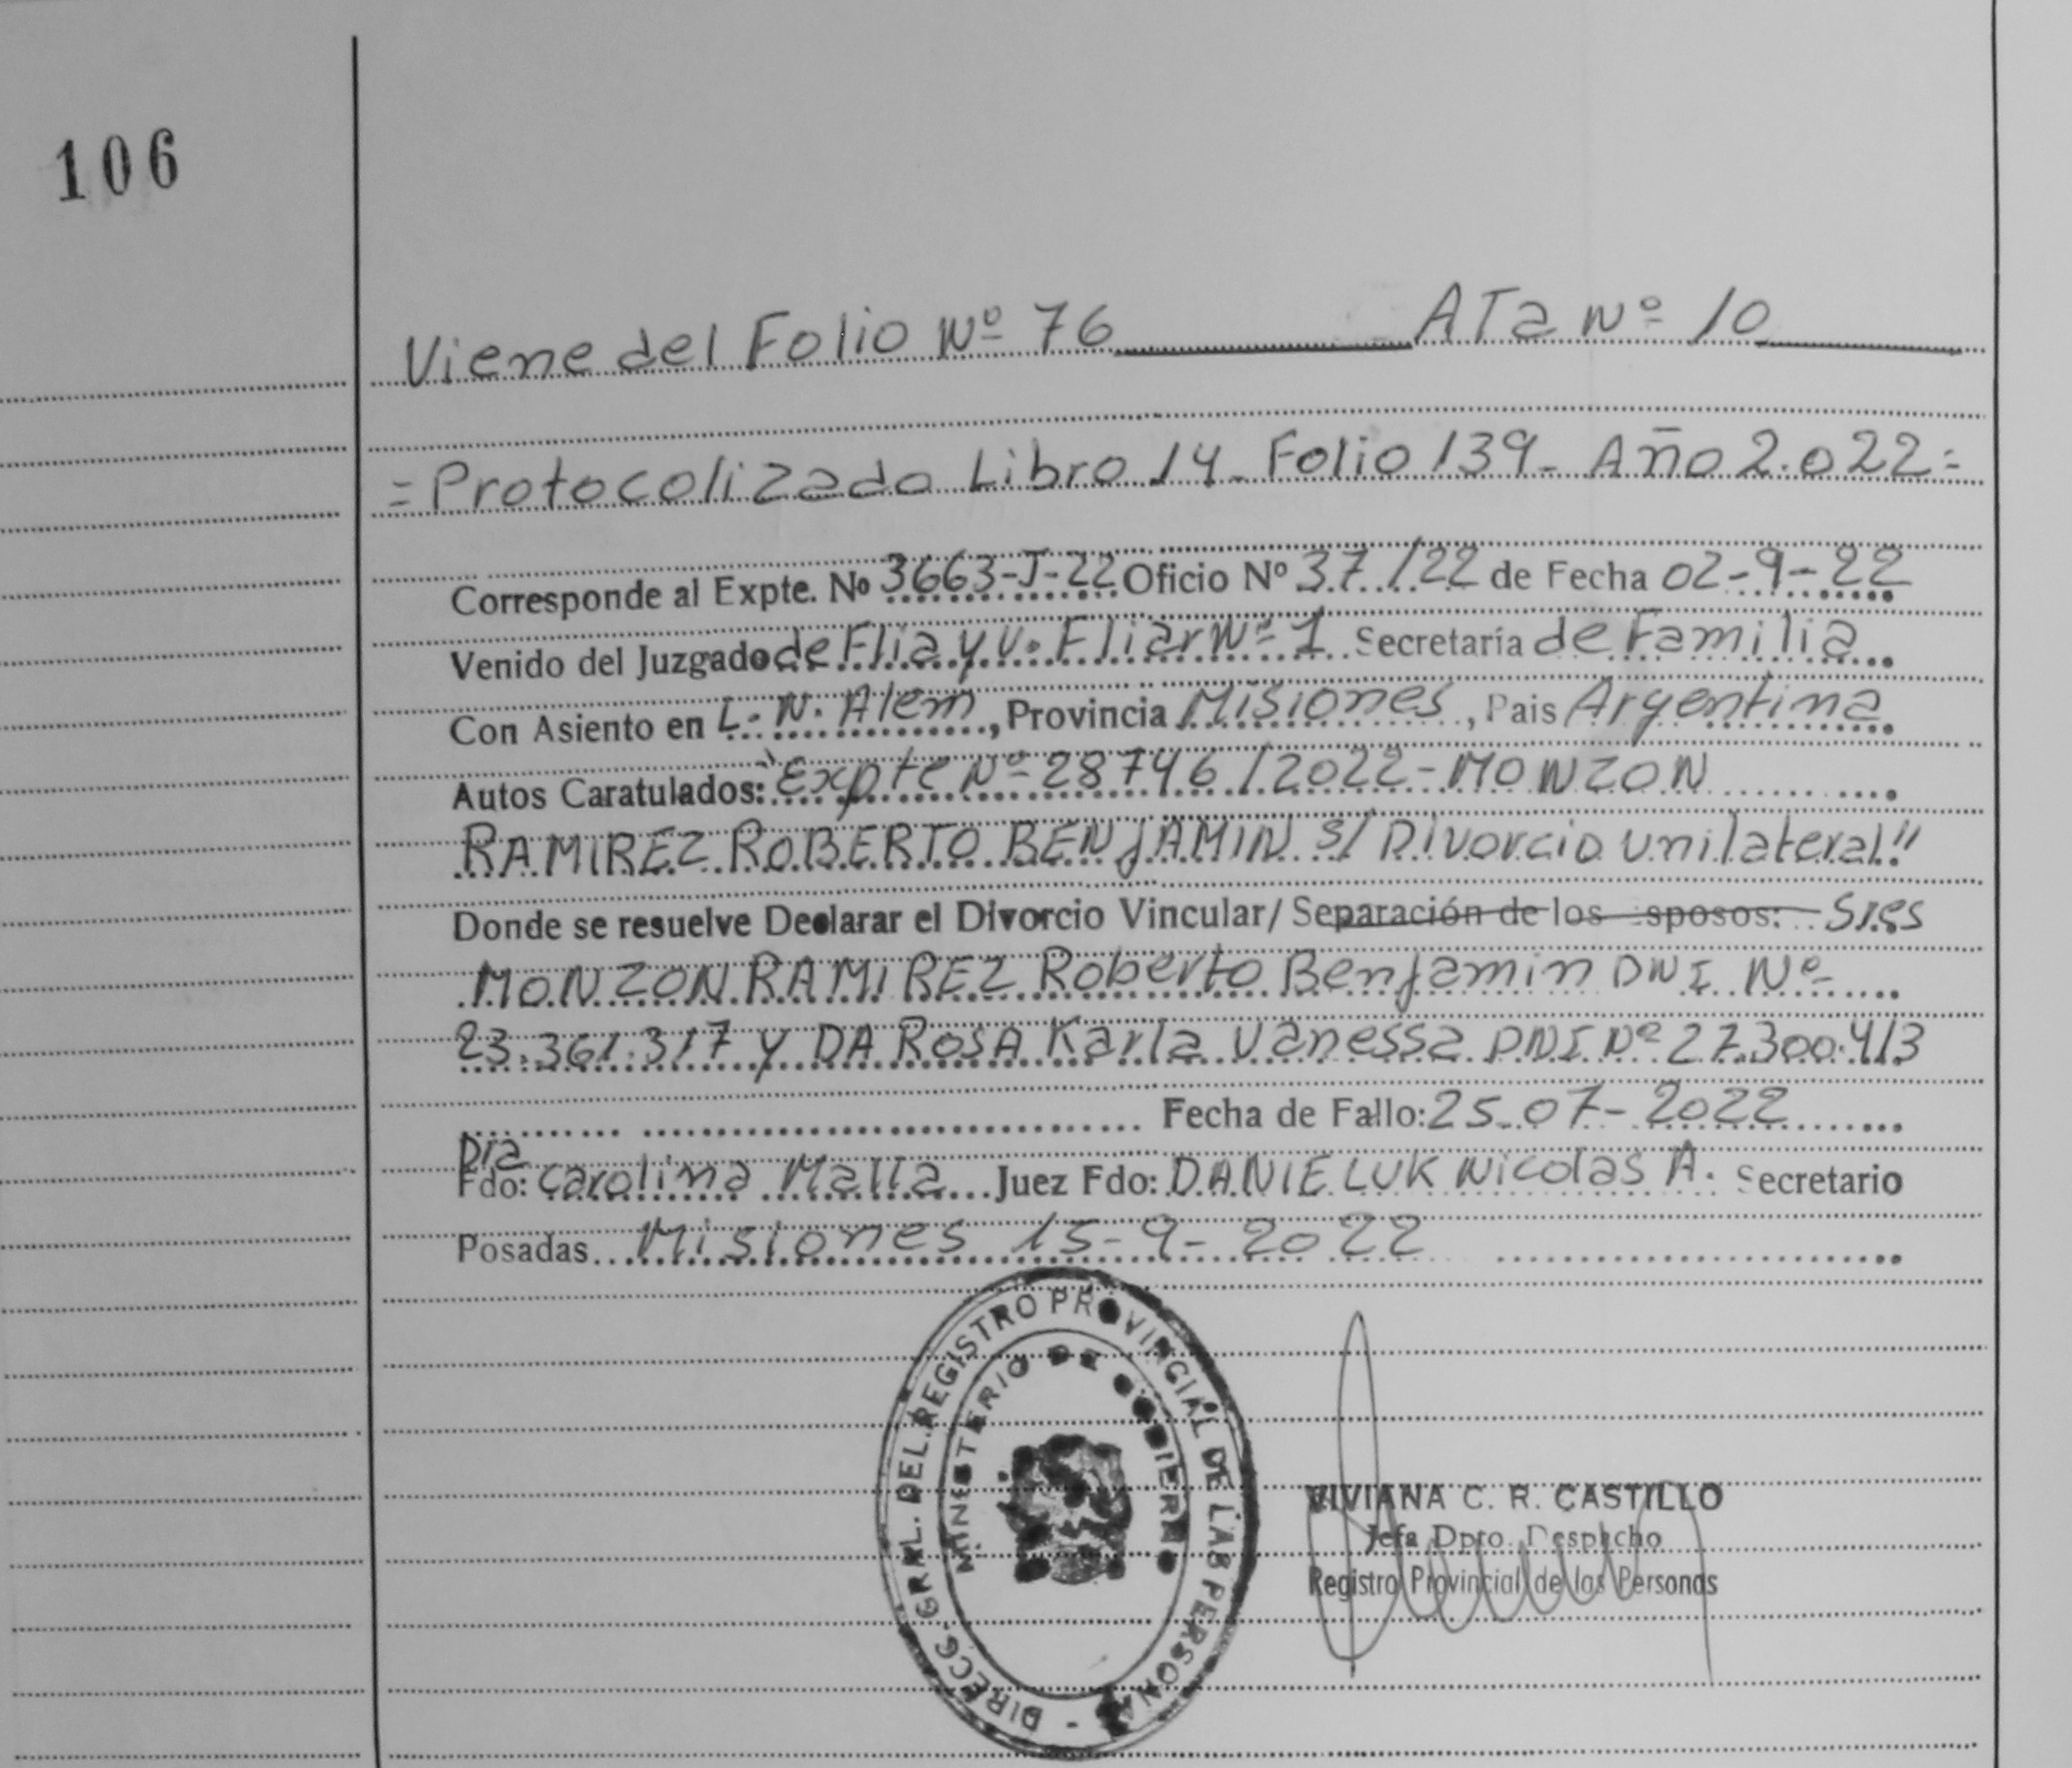 106
Viene del Folio Nº 76 ATa Nº 10
= Protocolizado Libro 14 - Folio 139 - Año 2.022 =
Corresponde al Expte. No 3663-J-22 Oficio Nº 37/22 de Fecha 02-9-22
Venido del Juzgado de Flia y V. Fliar Nº 1 Secretaría de Familia
Con Asiento en L. N. Alem, Provincia Misiones, Pais Argentina
Autos Caratulados: "Expte Nº 28746/2022 - MONZON
RAMIREZ ROBERTO BENJAMIN S/ Divorcio unilateral"
Donde se resuelve Declarar el Divorcio Vincular/ Separación de los esposos: Sres
MONZON RAMIREZ Roberto Benjamin DNI Nº
23.361.317 y DA ROSA Karla Vanessa DNI Nº 27.300.413
Fecha de Fallo: 25-07-2022
Dra
Fdo: Carolina Malla Juez Fdo: DANIELUK Nicolas A. Secretario
Posadas Misiones 15-9-2022
DIRECC. GRAL. DEL REGISTRO PROVINCIAL DE LAS PERSONAS -
MINISTERIO DE GOBIERNO
VIVIANA C. R. CASTILLO
Jefa Dpto. Despacho
Registro Provincial de las Personas